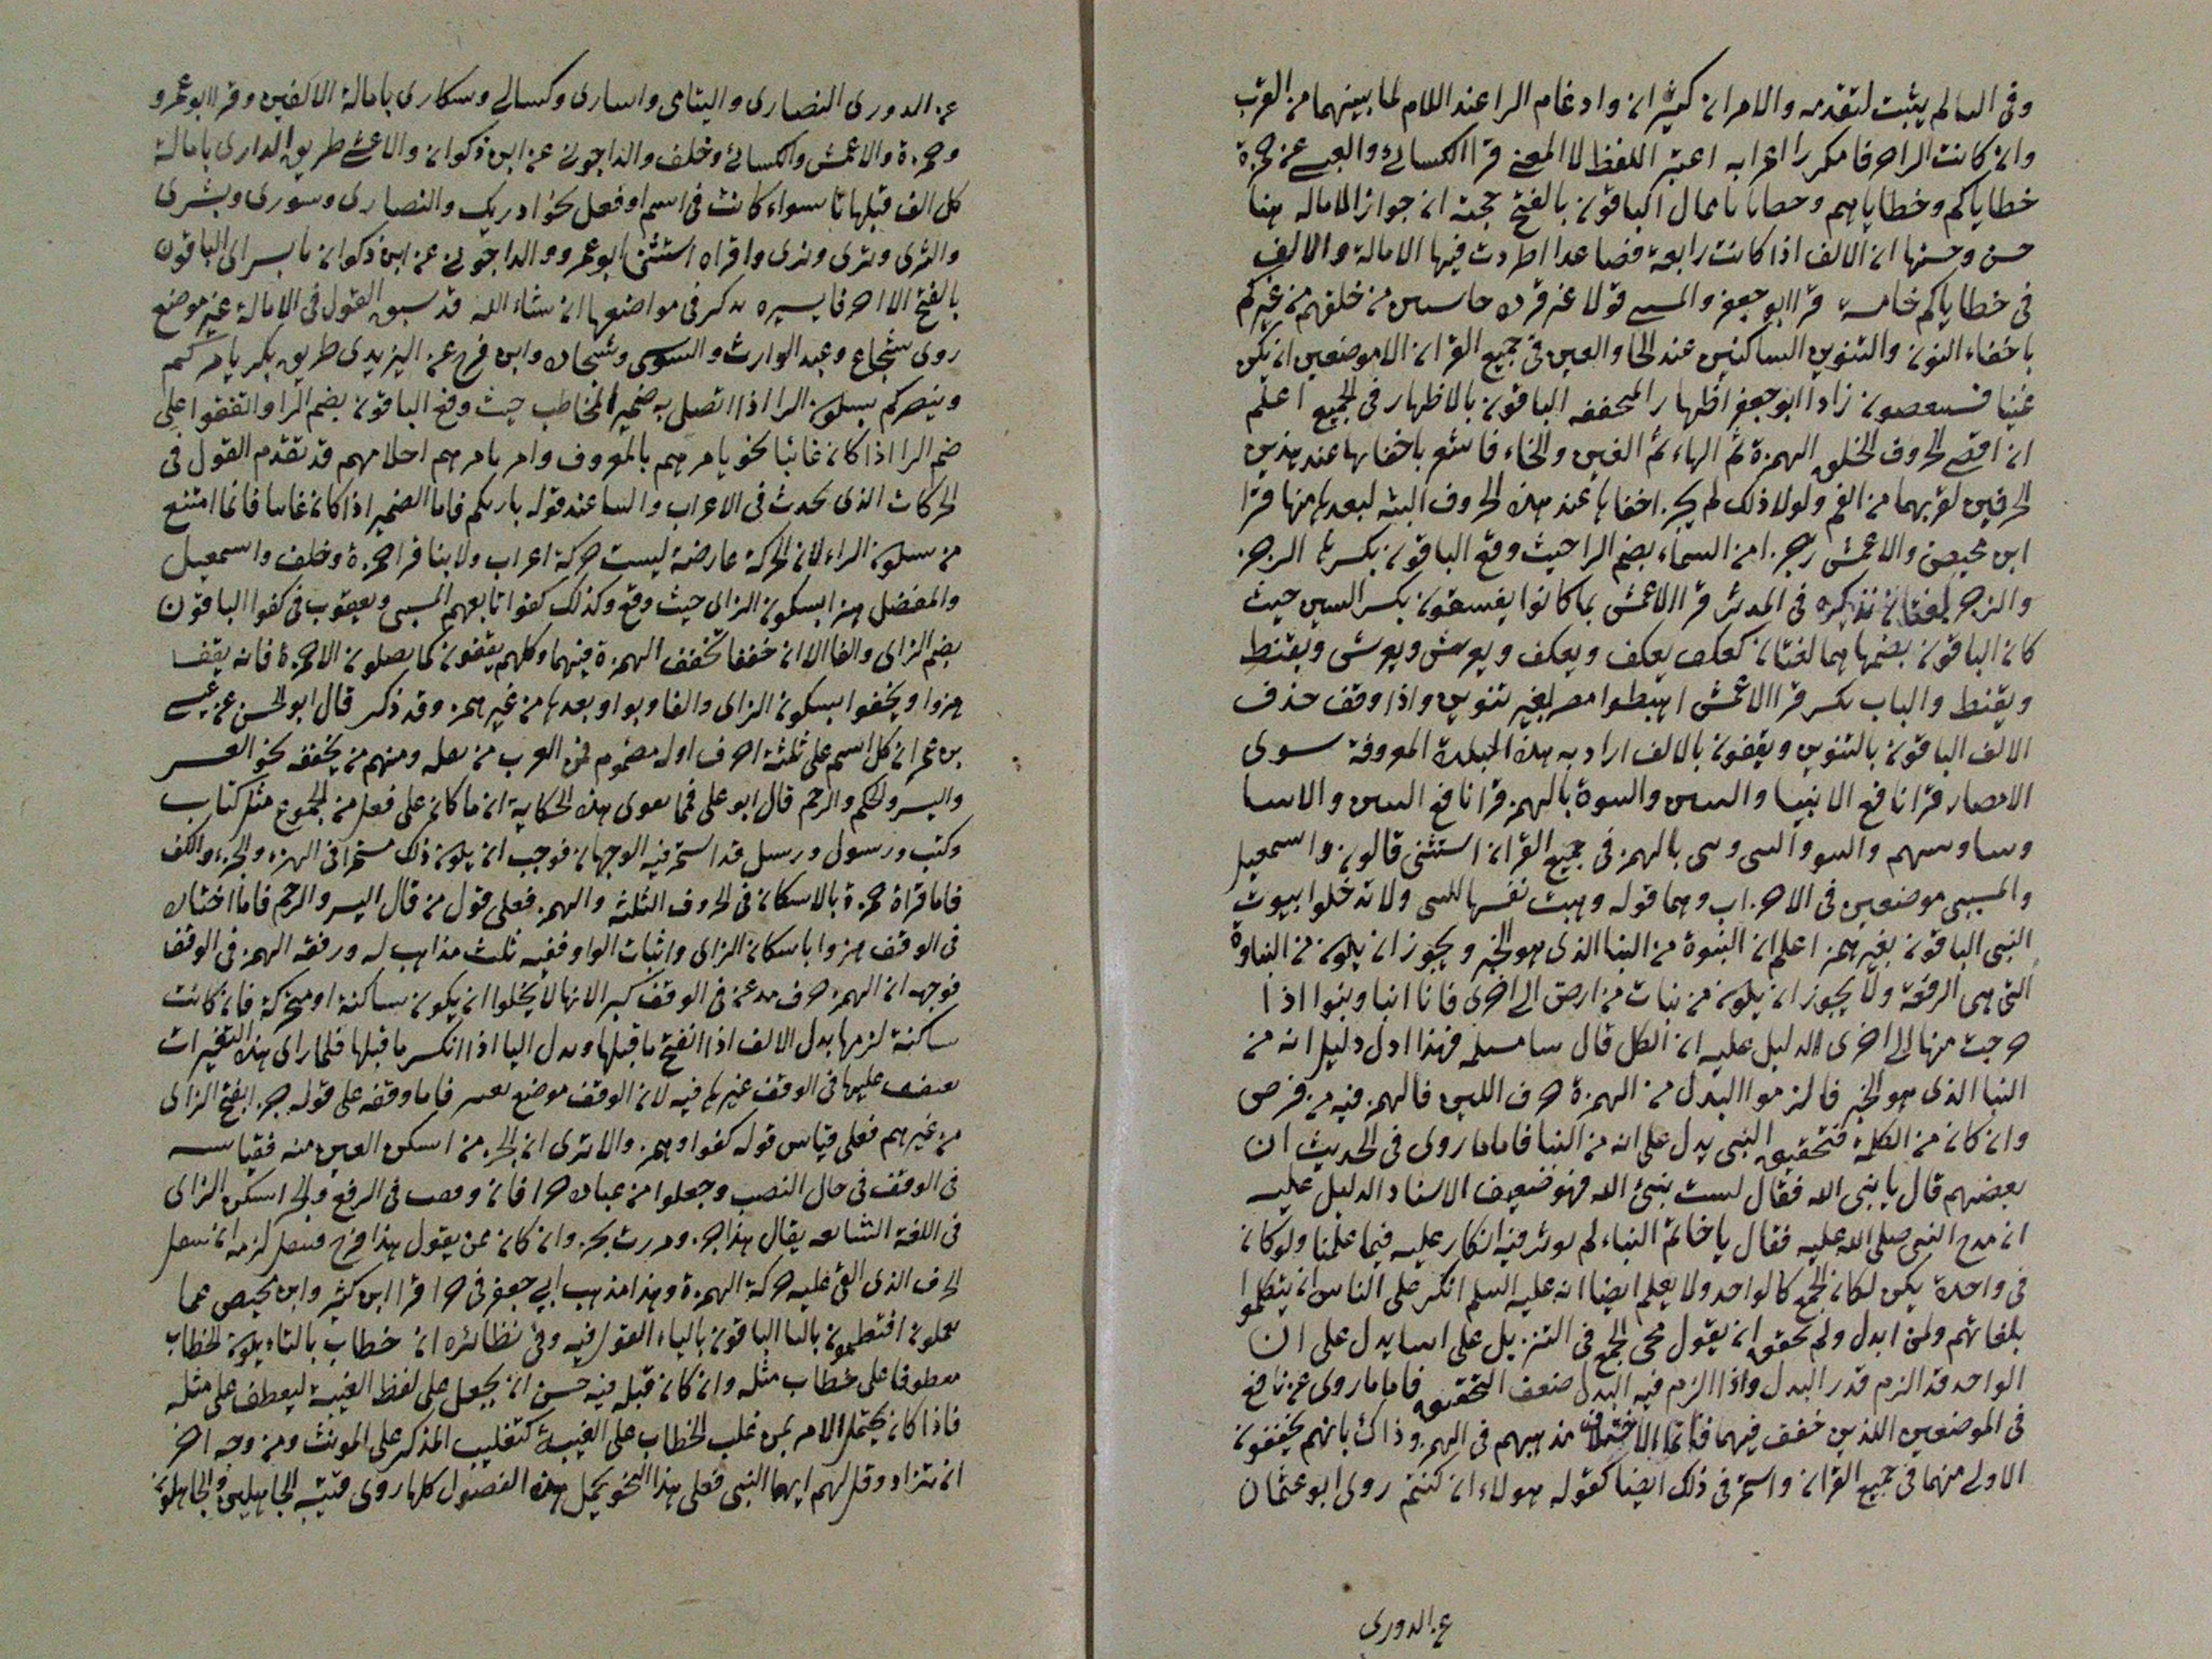 وفى السالم يثبت لتقدمه والامران كثيران وادغام الرا عند اللام لما بينهما من القرب
وان كانت الرا حرفا مكررا اعرابه اعتبر اللفظ لا المعنى قرا الكسائى والعبسى عن حمزة
خطاياكم وخطاياهم وخطايا بامال الباقون بالفتح حجته ان جواز الاماله هنا
حسن وحسنها ان الالف اذا كانت رابعة فصاعدا اطردت فيها الامالة والالف
فى خطاياكم خامسة قرا ابو جعفر والمسيبى قولا غير قردة خاسين من خلقهم من غيركم
باخفاء النون والتنوين الساكنين عند الخا والغين فى جميع القران الا موضعين ان يكن
غنيا فسينغضون زاد ابو جعفر اظهار المنخنقة الباقون بالاظهار فى الجميع اعلم
ان اقصى الحروف الحلق الهمزة ثم الهاء ثم الغين والخاء فاتسع باخفائها عند هذين
الحرفين لقربهما من الفم ولولا ذلك لم يجز اخفاها عند هذه الحروف البتة لبعدها منها قرا
ابن محيصن والاعمش رجزا من السماء بضم الرا حيث وقع الباقون بكسرها الرجز
والرجز لغتان نذكره فى المدثر قرا الاعمش بما كانوا يفسقون بكسر السين حيث
كان الباقون بضمها هما لغتان كعكف يعكف ويعكف ويعرش ويعرش ويقنط
ويقنط والباب بكسر قرا الاعمش اهبطوا مصر بغير تنوين واذا وقف حذف
الالف الباقون بالتنوين ويقفون بالالف اراد به هذه البلدة المعروفة سوى
الامصار قرا نافع الانبيا والنبيين والنبوة بالهمز قرا نافع النبيين والانبيا
والنبى بالهمز فى جميع القران استثنى قالون واسمعيل
والمسيبى موضعين فى الاحزاب وهما قوله وهبت نفسها للنبى ولا تدخلوا بيوت
النبى الباقون بغير همز اعلم ان النبوة من النبا الذى هو الخبر ويجوز ان يكون من النباوة
التى هى الرفعة ولا يجوز ان يكون من نبات من ارض الى اخرى فانا انبا ونبوا اذا
خرجت منها الى اخرى الدليل عليه ان الكل قال تنبا مسيلمه فهذا ادل دليل انه من
النبا الذى هو الخبر فالزموا البدل من الهمزة حرف اللين فالهمز فيه مرفوض
وان كان من الكلمة فتحقيق النبى يدل على انه من النبا فاما ما روى فى الحديث ان
بعضهم قال يا نبى الله فقال لست بنبئ الله فهو ضعيف الاسناد الدليل عليه
ان مدح النبى صلى الله عليه فقال يا خاتم النباء لم يوثر فيه انكار عليه فيما علمنا ولو كان
فى واحدة يكن لكان الجمع كالواحد ولا يعلم ايضا انه عليه السلم انكر على الناس ان يتكلموا
بلغاتهم ولمن ابدل ولم يحقق ان يقول مجى الجمع فى التنزيل على انبيا يدل على ان
الواحد قد الزم قدر البدل واذا الزم فيه البدل ضعف التحقيق فاما ما روى عن نافع
فى الموضعين اللذين خفف فيهما فانما الاختلاف مذهبهم فى الهمز وذاك بانهم يخففون
الاولى منهما فى جميع القران واستمر فى ذلك ايضا كقوله هولاء ان كنتم روى ابو عثمان
عن الدورى
عن الدورى النصارى واليتامى واسارى وكسالى وسكارى بامالة الالفين وقرا ابو عمرو
وحمزة والاعمش والكسائى وخلف والداجونى عن ابن ذكوان والاعشى طريق الدارى بامالة
كل الف قبلها را سواء كانت فى اسم او فعل نحو ادريك والنصارى وشورى وبشرى
والثرى وترى ونرى وافراه استثنى ابو عمرو والداجونى عن ابن ذكوان يا بشراى الباقون
بالفتح الا احرفا يسيره تذكر فى مواضعها ان شاء الله قد سبق القول فى الامالة غير موضع
روى شجاع وعبد الوارث والسوسى وسجادة وابن فرح عن اليزيدى طريق بكر يامركم
وينصركم بسكون الرا اذا اتصل به ضمير المخاطب حيث وقع الباقون بضم الرا واتفقوا على
ضم الرا اذا كان غائبا نحو يامرهم بالمعروف وام يامرهم احلامهم قد تقدم القول فى
الحركات الذى تحدث فى الاعراب والبنا عند قوله بارئكم فاما الضمير اذا كان غائبا فانما امتنع
من سكون الراء لان الحركة عارضة ليست حركة اعراب ولا بنا قرا حمزة وخلف واسمعيل
والمفضل هزا بسكون الزاى حيث وقع وكذلك كفوا تابعهم المسيبى ويعقوب فى كفوا الباقون
بضم الزاى والفا الا ان حفصا تخفف الهمزة فيهما وكلهم يقفون كما يصلون الا حمزة فانه يقف
هزوا وكفوا بسكون الزاى والفا وبواو بعدها من غير همز وقد ذكر قال ابو الحسن عن عيسى
بن عمر ان كل اسم على ثلثة احرف اوله مضموم فمن العرب من يثقله ومنهم من يخففه نحو العسر
واليسر والحكم والرحم قال ابو على فمما يقوى هذه الحكاية ان ما كان على فعل من الجموع مثل كتاب
وكتب ورسول ورسل قد استمر فيه الوجهان فوجب ان يكون ذلك مستمرا فى الهزء والجزء والكفء
فاما قراة حمزة بالاسكان فى الحروف الثلثة والهمز فعلى قول من قال اليسر والرحم فاما اختياره
فى الوقف هزوا باسكان الزاى واثبات الواو ففيه ثلث مذاهب له ورفقة الهمز فى الوقف
فوجه ان الهمز حرف مدغم فى الوقف كبير الانها لا يخلوا ان يكون ساكنة او متحركة فان كانت
ساكنة لزمها بدل الالف اذا انفتح ما قبلها وبدل اليا اذا انكسر ما قبلها فلما راى هذه التغييرات
تعتقب عليها فى الوقف غيرها فيه لان الوقف موضع تغيير فاما وقفه على قوله جزا بفتح الزاى
من غير همز فعلى قياس قوله كفوا وهمز والا ترى ان الجزء من اسكن العين منه فقياسه
فى الوقف فى حال النصب وجعلوا من عباده جزا فان وقف فى الرفع والجر اسكن الزاى
فى اللغة الشايعه يقال هذا جز ومررت بجز وان كان ممن يقول هذا فرج فيثقل لزمه ان يثقل
الحرف الذى القى عليه حركة الهمزة وهذا مذهب ابى جعفر فى جزا قرا ابن كثير وابن محيصن عما
يعملون افتطمعون باليا الباقون بالتاء القول فيه وفى نظائره ان خطاب بالتاء يكون الخطاب
معطوفا على خطاب مثله وان كان قبله غيبه حسن ان يجعل على لفظ الغيبة ليعطف على مثله
فاذا كان يحتمل الامر بمن غلب الخطاب على الغيبة كتغليب المذكر على المونث ومن وجه اخر
ان تزاد وقل لهم ايها النبى فعلى هذا النحو يحمل هذه الفصول كلها روى قتيبة الجاهلين والجاهلون